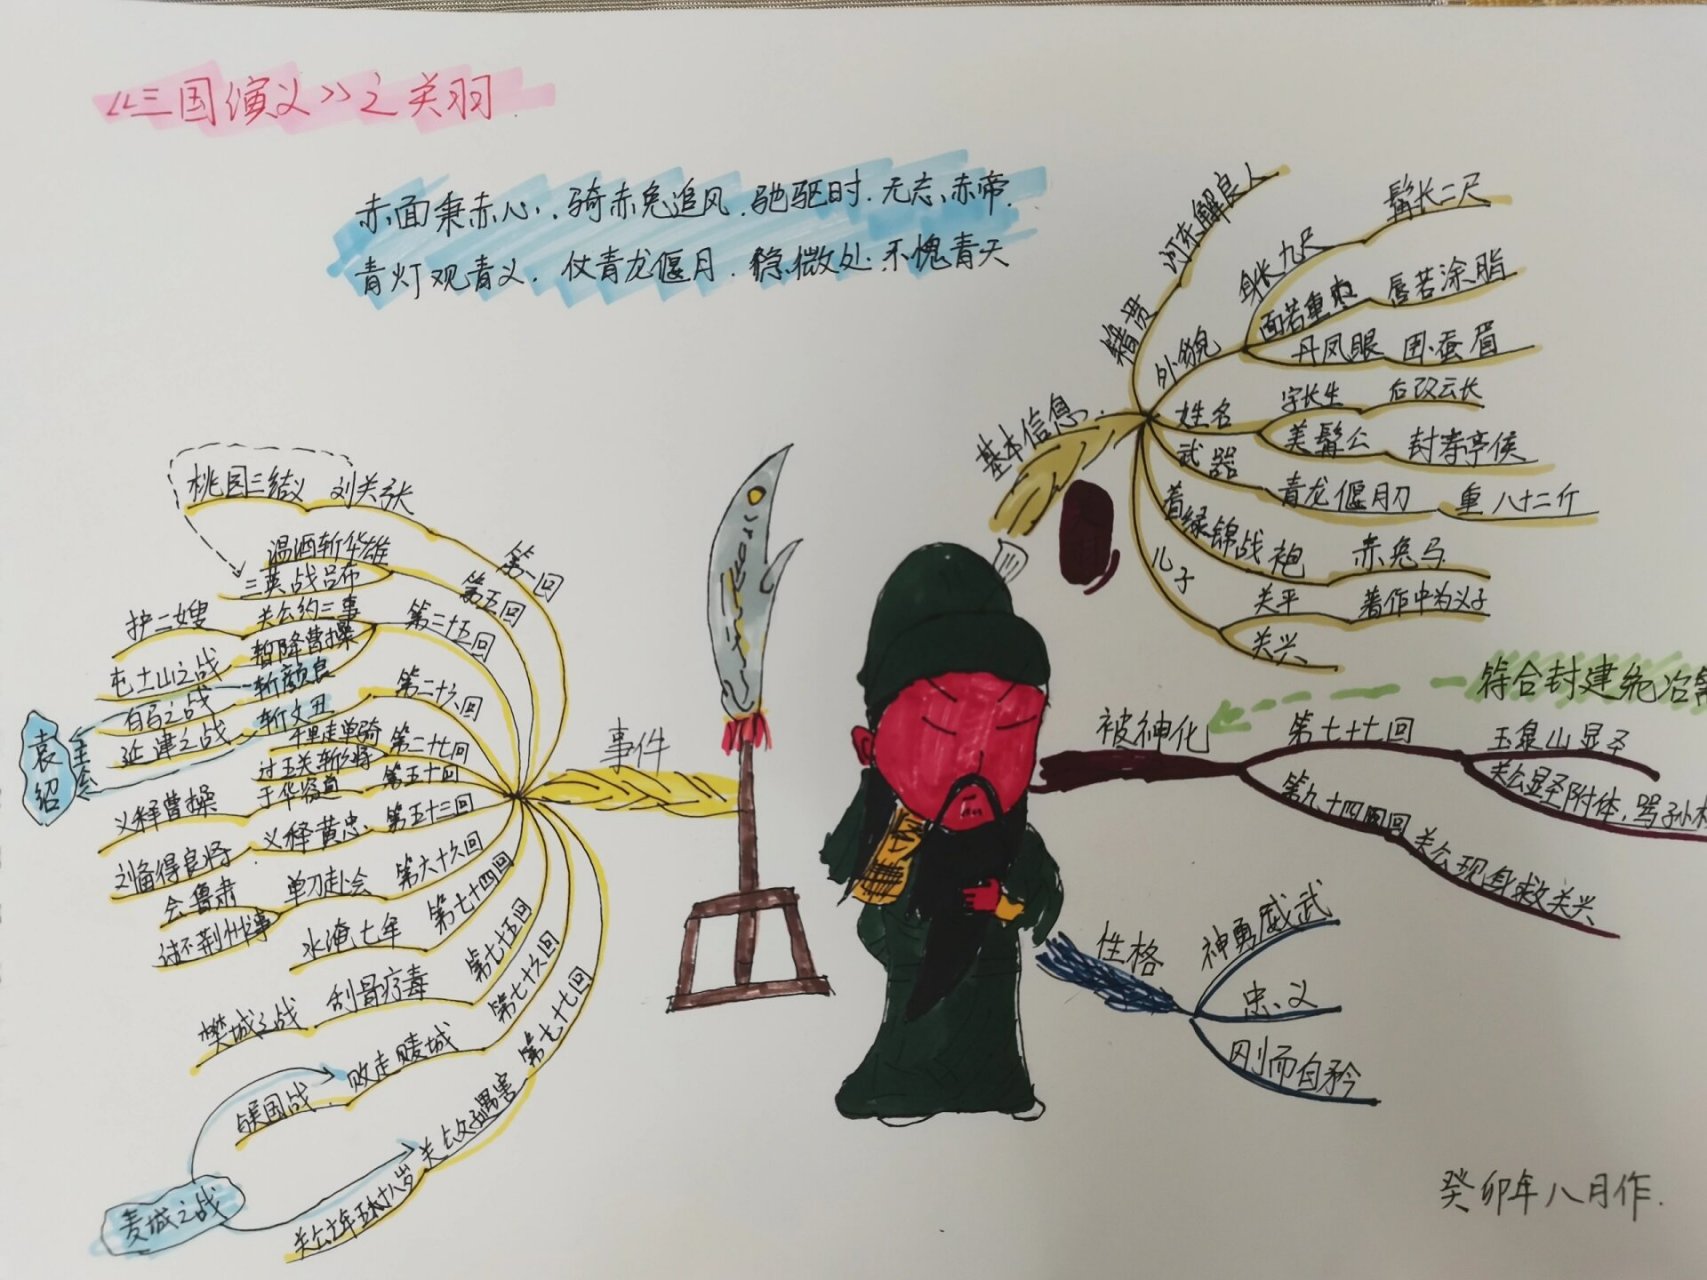 《三国演义》之关羽
赤面秉赤心，骑赤兔追风．驰驱时．无忘赤帝．
青灯观青义．仗青龙偃月．隐微处．不愧青天
基本信息
籍贯
河东解良人
外貌
身长九尺
髯长二尺
面若重枣
唇若涂脂
丹凤眼
卧蚕眉
姓名
字长生
后改云长
美髯公
封寿亭侯
武器
青龙偃月刀
重八十二斤
着绿锦战袍
赤兔马
儿子
关平
著作中为义子
关兴
被神化
符合封建统治
第七十七回
玉泉山显圣
关公显圣附体，骂孙
第九十四回
关公现身救关兴
性格
神勇威武
忠、义
刚而自矜
事件
第一回
刘关张
桃园三结义
第五回
温酒斩华雄
三英战吕布
第二十五回
关公约三事
护二嫂
暂降曹操
屯土山之战
斩颜良
白马之战
第二十六回
斩文丑
延津之战
袁绍
第二十七回
千里走单骑
过五关斩六将
第五十回
于华容道
义释曹操
第五十三回
义释黄忠
刘备得良将
第六十六回
单刀赴会
会鲁肃
讨不荆州事
第七十四回
水淹七军
第七十五回
刮骨疗毒
樊城之战
第七十六回
败走麦城
第七十七回
关公父子遇害
麦城之战
癸卯年八月作．